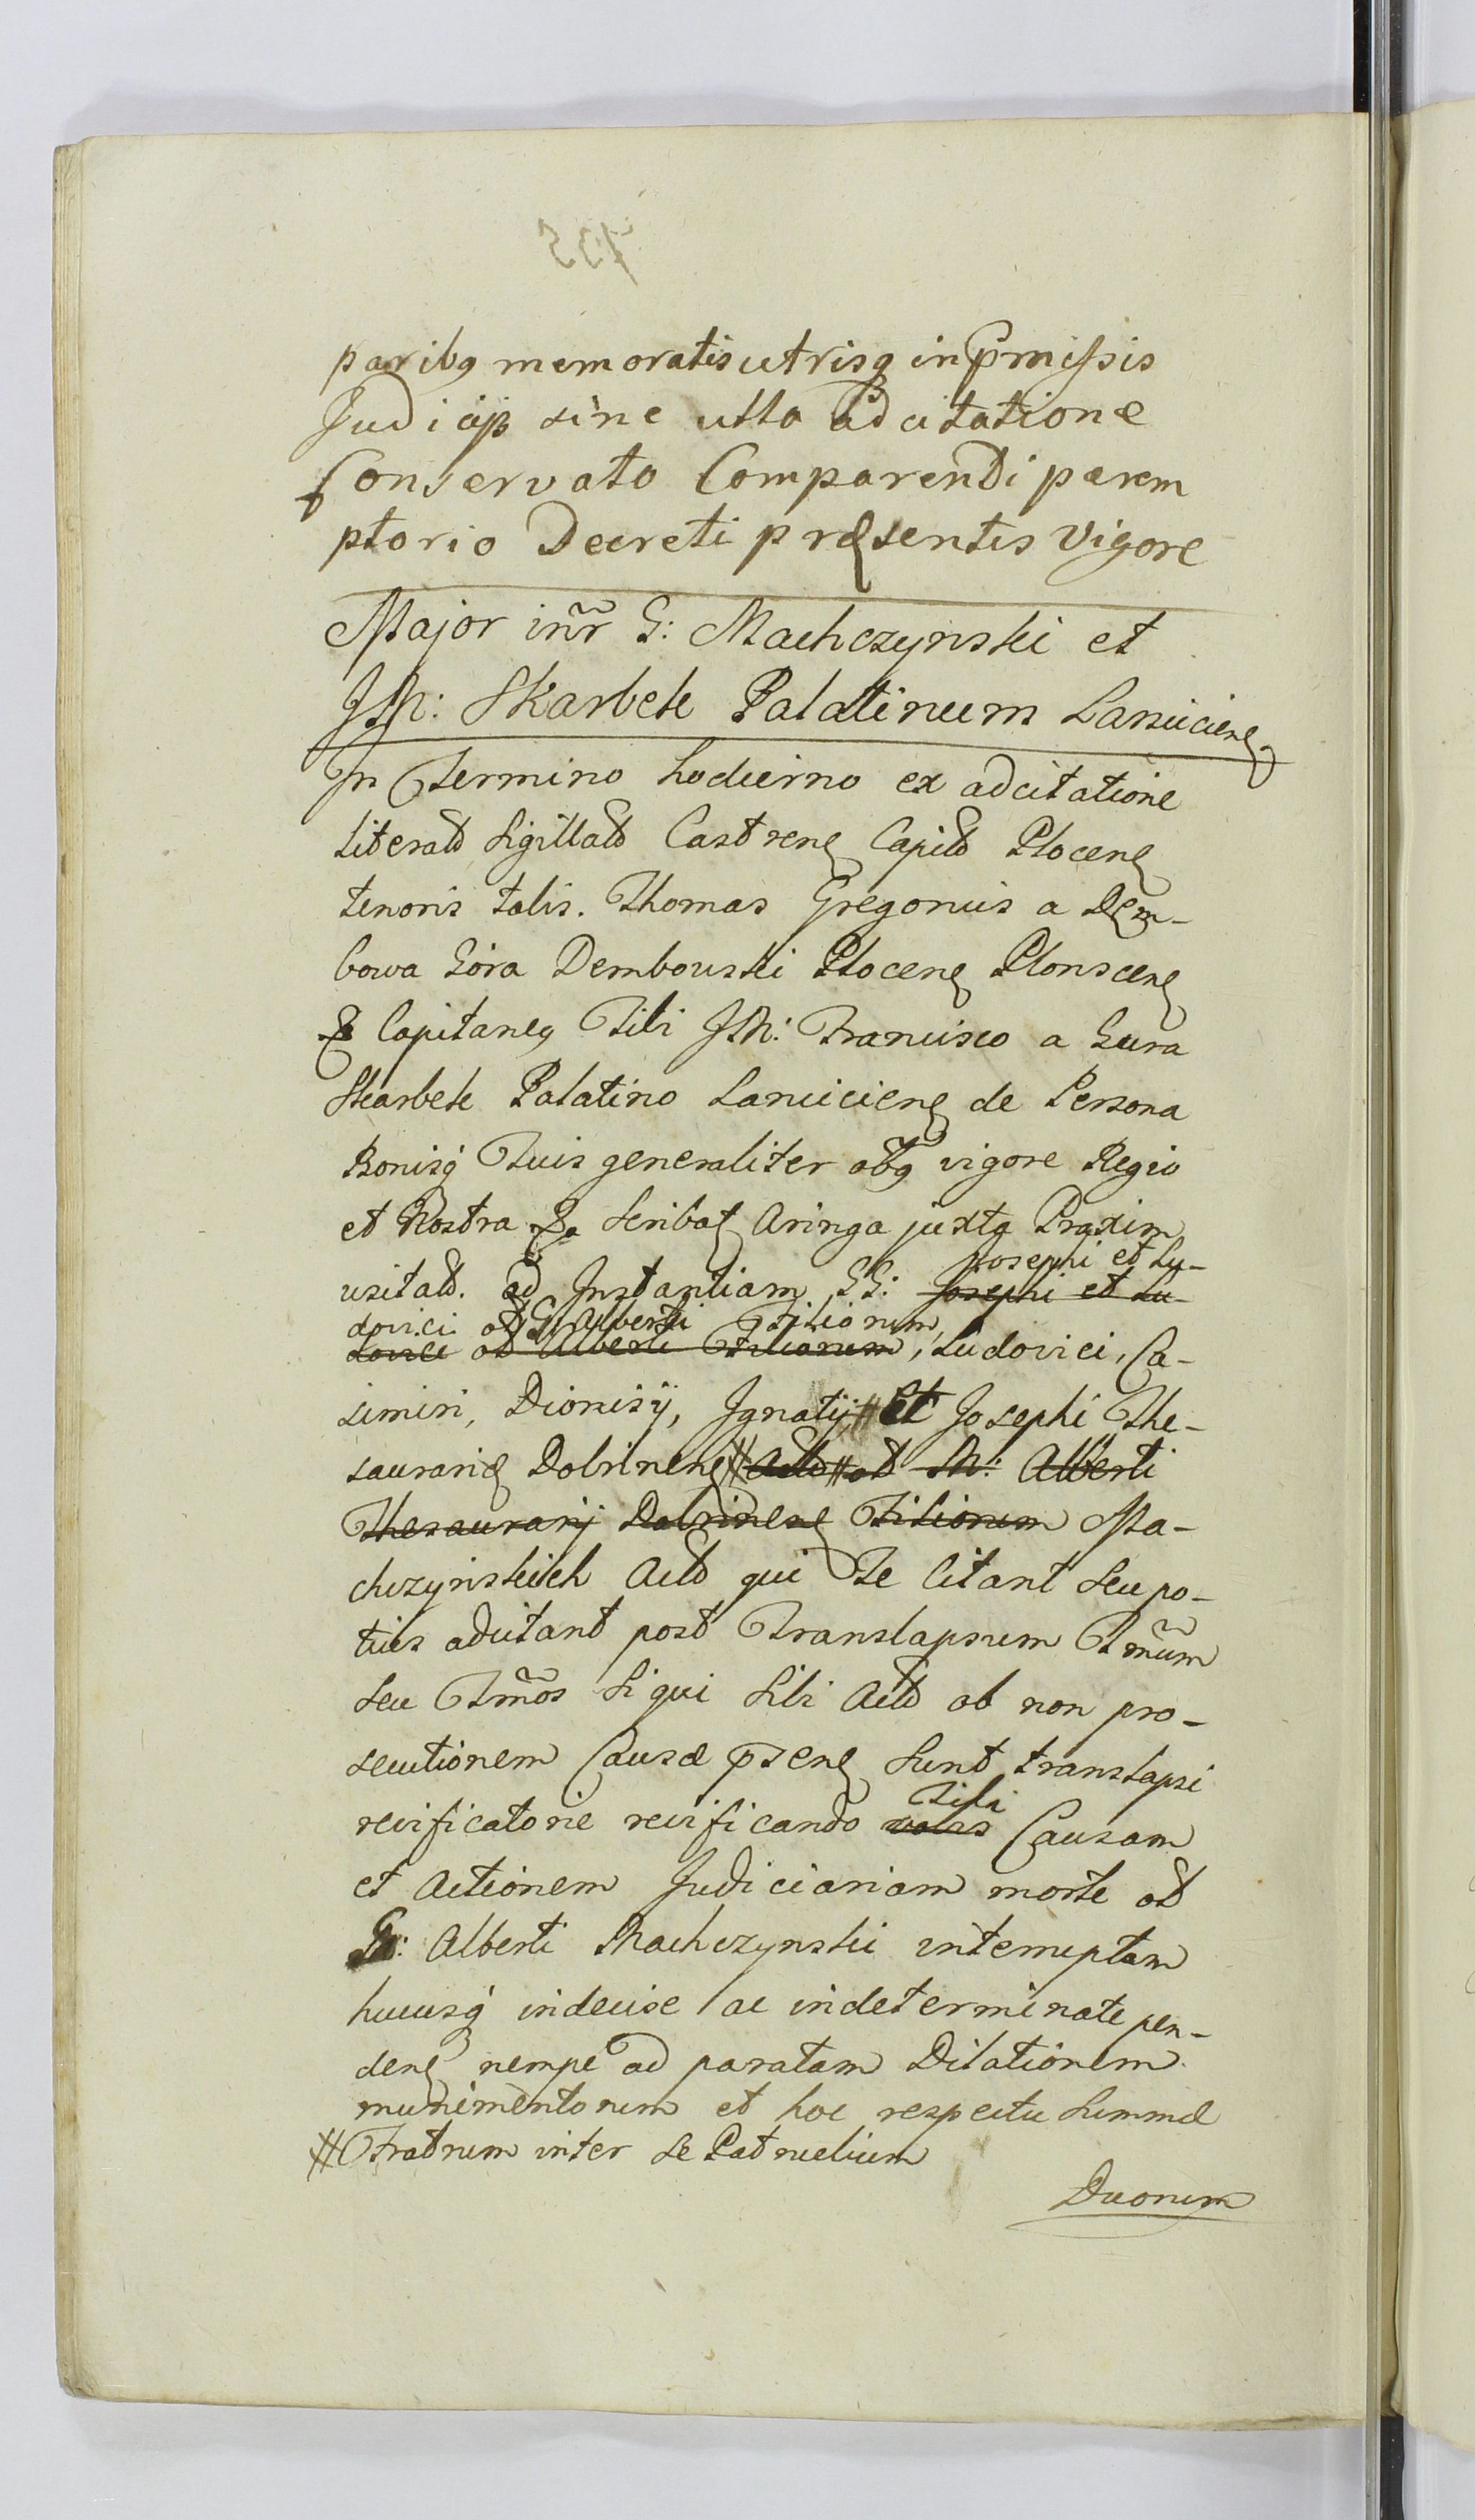 paribq memoratis utrisq in pmissis
Judicijs sine ulla adcitatione
Conservato Comparendi perem
ptorio Decreti præsentis vigore
Major inr̃ G: Machczynski et
JM: Skarbek Palatinum Lanciciens
In Termino hodierno ex adcitatione
literali Sigillali Castrens Capitli Plocens
tenoris talis. Thomas Gregorius a Dem-
bowa Góra Dembowski Plocens Plonscens
& Capitaneq Tibi JM: Francisco a Gura
Skarbek Palatino Lanciciens de Persona
Bonisq Tuis generaliter obq vigore Regio
et Nostra &a Scribat Aringa juxta Praxim
Josephi et Lu-
usitat. ad Instantiam GG: Josephi et Lu-
dovici olt G: Alberti Filiorum,
dovici olt Alberti Filiorum, Ludovici, Ca-
simiri, Dionisÿ, Ignatij # et Josephi The-
saurariæ Dobrinens # Actt # olt M: Alberti
Thesaurarij Dobrinens Filiorum Ma-
chczynskich Actt qui Te Citant Seu po-
tius adcitant post Translapsum Tm̃um
Seu Tm̃os Si qui Sibi Actt ob non pro-
secutionem Causæ psens Sunt translapsi
Tibi
reificatorie reificando vobis Causam
et Actionem Judiciariam morte olt
G: Alberti Machczynski interruptam
hucusq indecise ac indeterminate pen-
dens nempe ad paratam Dilationem
munimentorum et hoc respectu Summæ
# Fratrum inter se Patruelium
Duorum